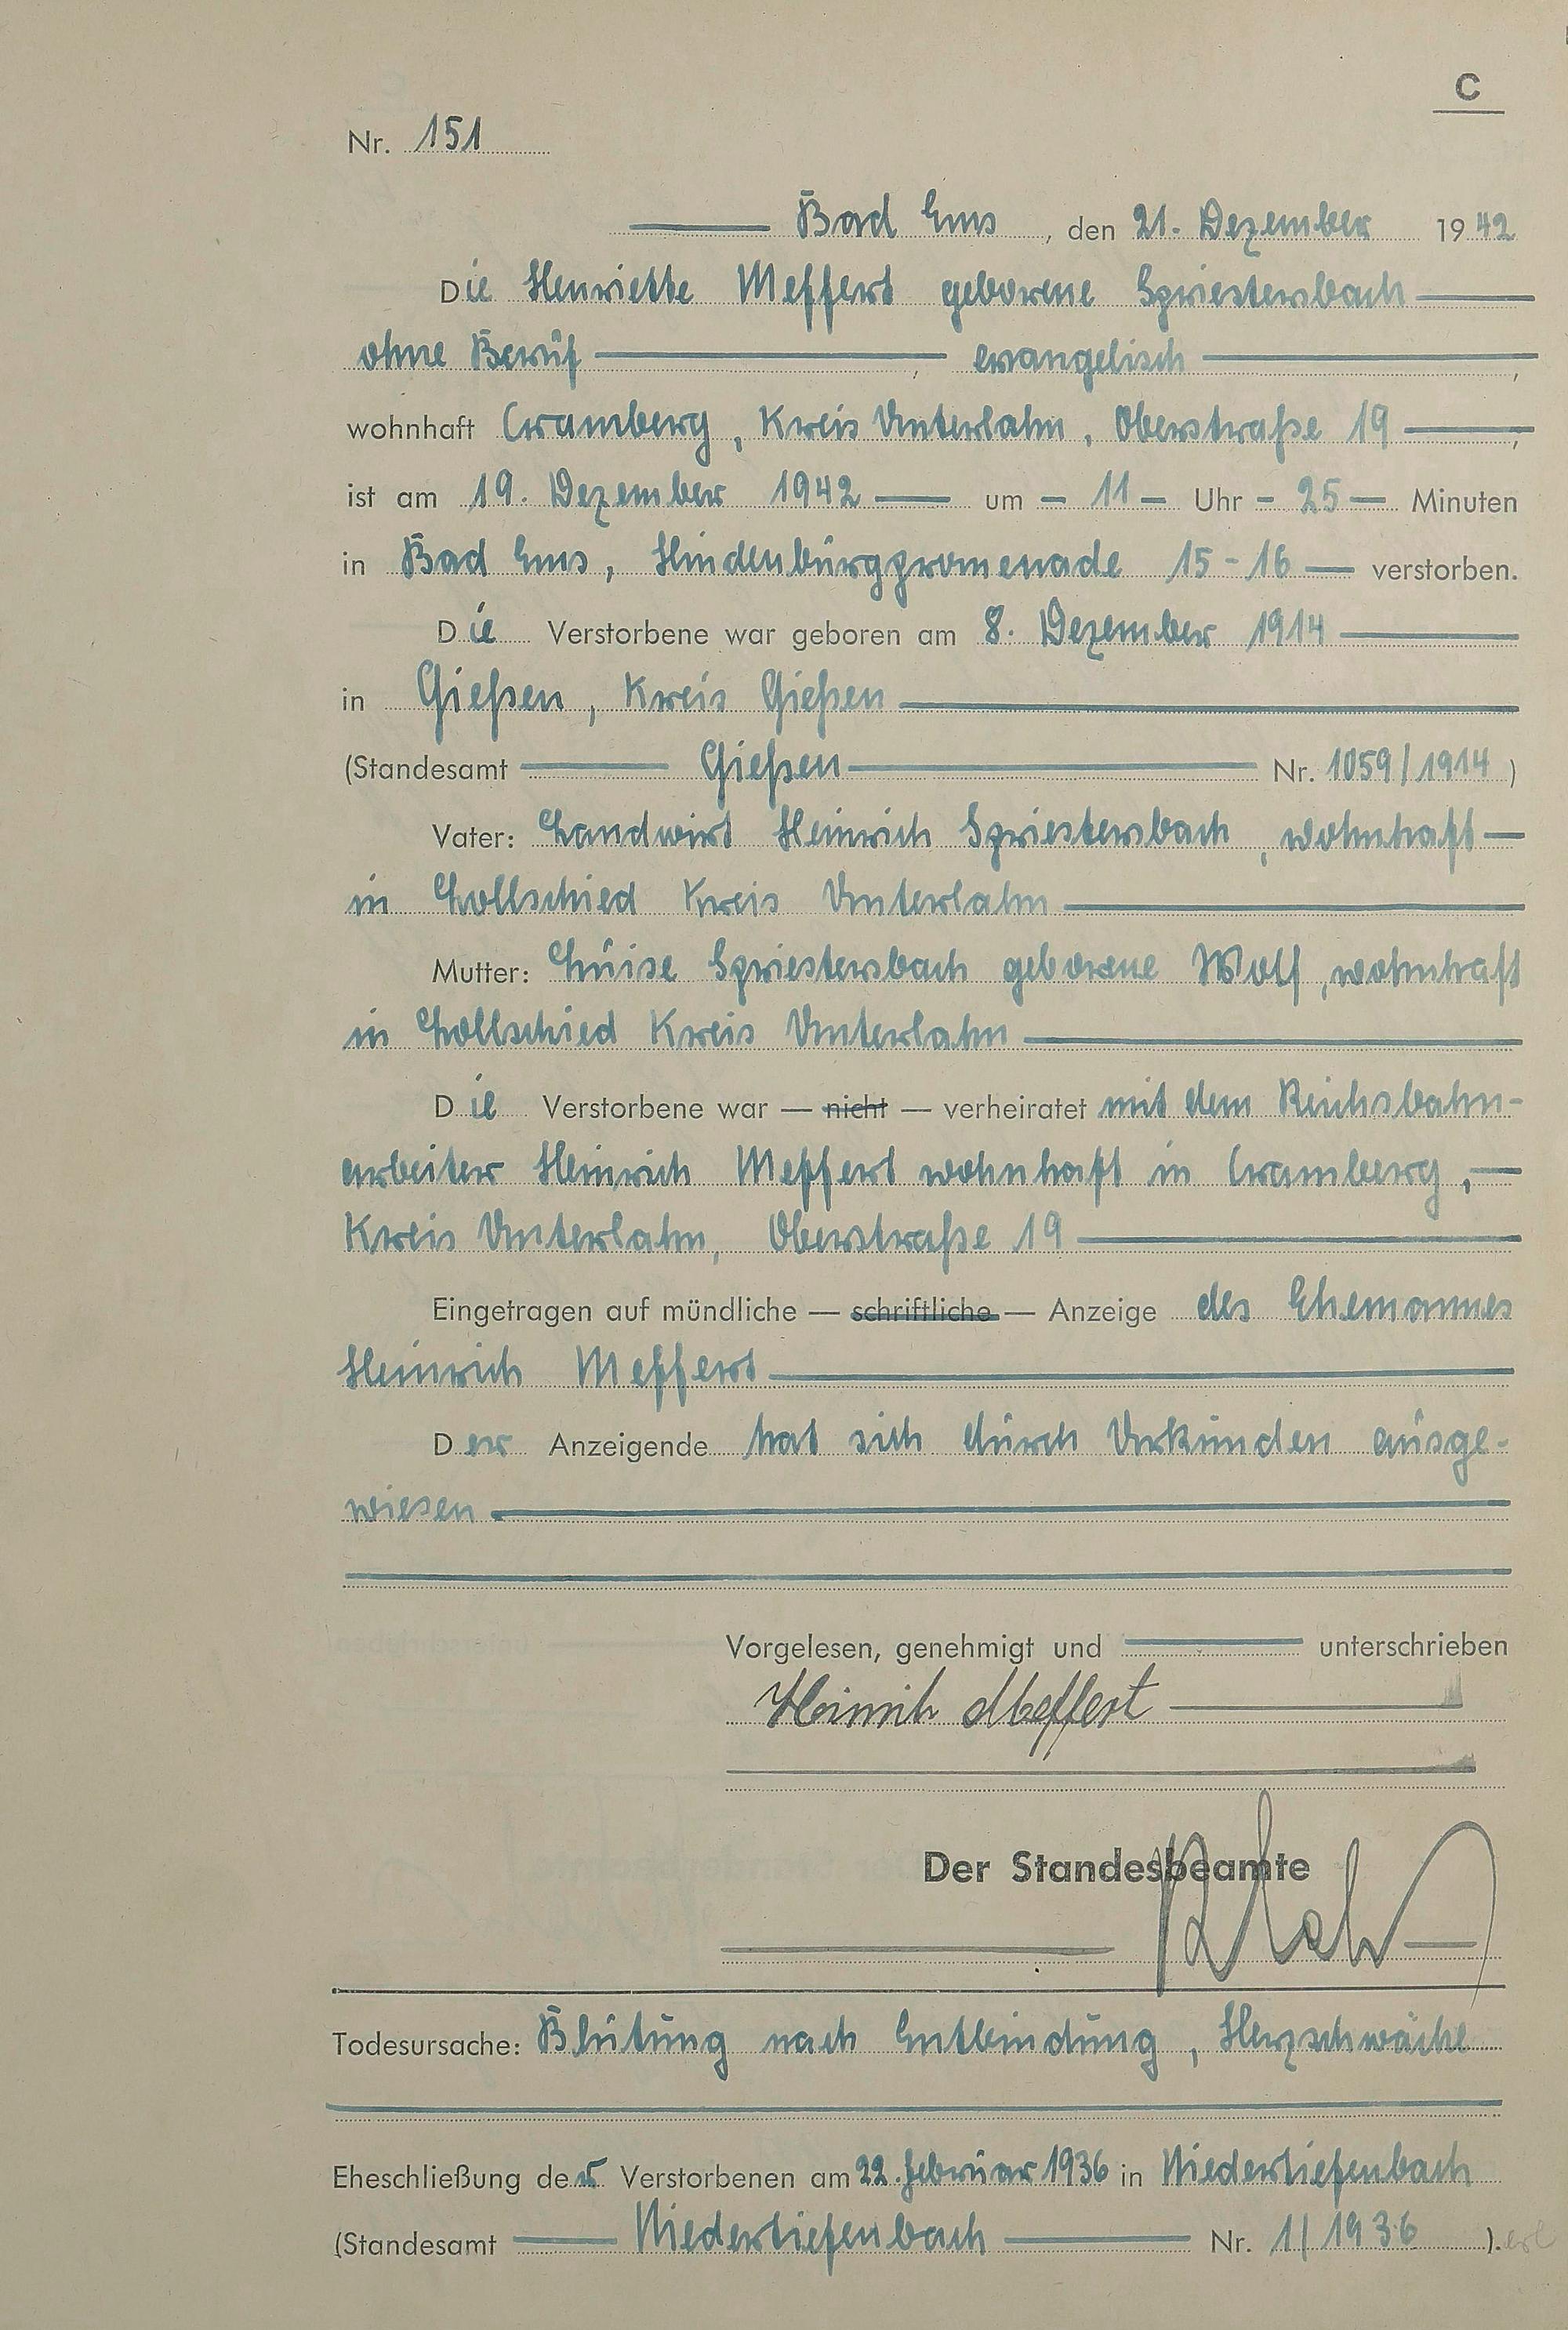 C
Nr. 151
Bad Ems, den 21. Dezember 1942
Die Henriette Meffert geborene Spriestersbach
ohne Beruf, evangelisch,
wohnhaft Cramberg, Kreis Unterlahn, Oberstraße 19,
ist am 19. Dezember 1942 um - 11 - Uhr - 25 - Minuten
in Bad Ems, Hindenburgpromenade 15-16 verstorben.
Die Verstorbene war geboren am 8. Dezember 1914
in Gießen, Kreis Gießen
(Standesamt Gießen Nr. 1059/1914)
Vater: Landwirt Heinrich Spriestersbach, wohnhaft
in Lollschied Kreis Unterlahn
Mutter: Luise Spriestersbach geborene Wolf, wohnhaft
in Lollschied Kreis Unterlahn
Die Verstorbene war — nicht — verheiratet mit dem Reichsbahn-
arbeiter Heinrich Meffert wohnhaft in Cramberg,
Kreis Unterlahn, Oberstraße 19
Eingetragen auf mündliche — schriftliche — Anzeige des Ehemannes
Heinrich Meffert
Der Anzeigende hat sich durch Urkunden ausge-
wiesen
Vorgelesen, genehmigt und unterschrieben
Heinrich Meffert
Der Standesbeamte
Todesursache: Blutung nach Entbindung, Herzschwäche
Eheschließung der Verstorbenen am 22. Februar 1936 in Niedertiefenbach
(Standesamt Niedertiefenbach Nr. 1/1936).